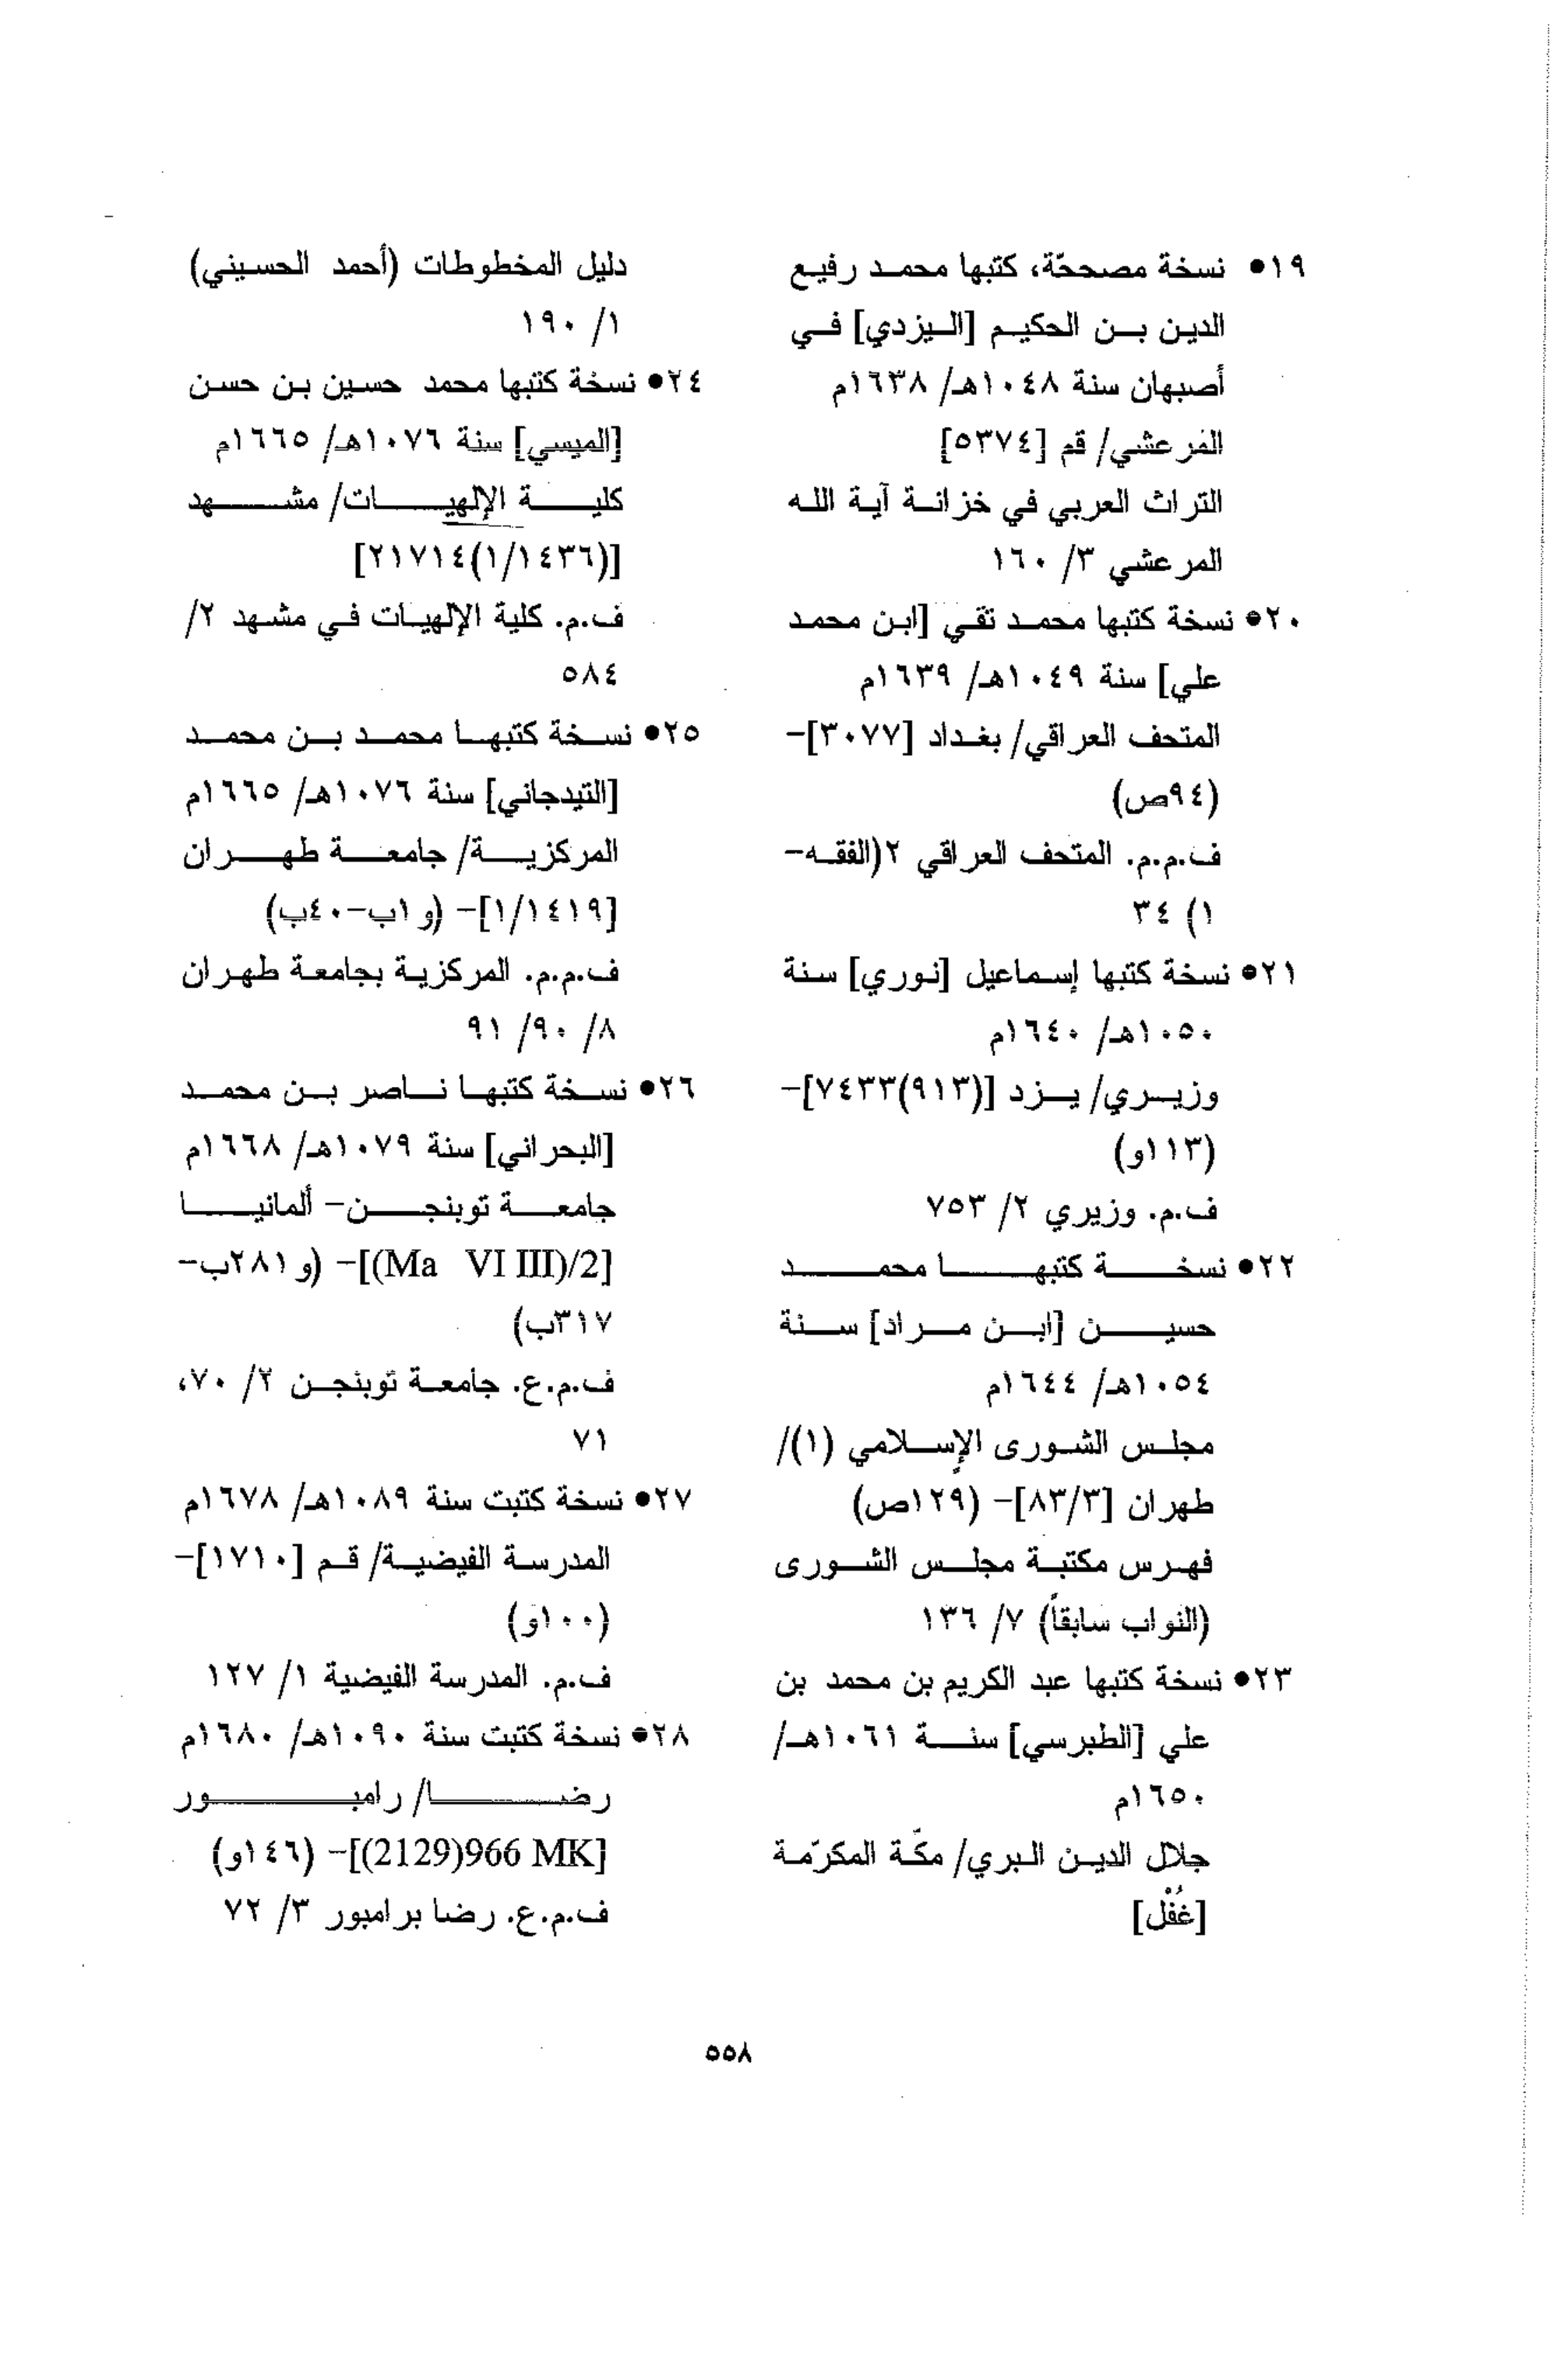 ١٩• نسخة مصححّة، كتبها محمد رفيع
الدين بن الحكيم [اليزدي] في
أصبهان سنة ١٠٤٨هـ/ ١٦٣٨م
المرعشي/ قم [٥٣٧٤]
التراث العربي في خزانة آية الله
المرعشي ٣/ ١٦٠
٢٠• نسخة كتبها محمد تقي [ابن محمد
علي] سنة ١٠٤٩هـ/ ١٦٣٩م
المتحف العراقي/ بغداد [٣٠٧٧]-
(٩٤ص)
ف.م.م. المتحف العراقي ٢(الفقه-
١) ٣٤
٢١• نسخة كتبها إسماعيل [نوري] سنة
١٠٥٠هـ/ ١٦٤٠م
وزيري/ يزد [(٩١٣)٧٤٣٣]-
(١١٣و)
ف.م. وزيري ٢/ ٧٥٣
٢٢• نسخة كتبها محمد
حسين [ابن مراد] سنة
١٠٥٤هـ/ ١٦٤٤م
مجلس الشورى الإسلامي (١)/
طهران [٨٣/٣]- (١٢٩ص)
فهرس مكتبة مجلس الشورى
(النواب سابقاً) ٧/ ١٣٦
٢٣• نسخة كتبها عبد الكريم بن محمد بن
علي [الطبرسي] سنة ١٠٦١هـ/
١٦٥٠م
جلال الدين البري/ مكّة المكرّمة
[غُفْل]
دليل المخطوطات (أحمد الحسيني)
١/ ١٩٠
٢٤• نسخة كتبها محمد حسين بن حسن
[الميسي] سنة ١٠٧٦هـ/ ١٦٦٥م
كلية الإلهيات/ مشهد
[(١/١٤٣٦)٢١٧١٤]
ف.م. كلية الإلهيات في مشهد ٢/
٥٨٤
٢٥• نسخة كتبها محمد بن محمد
[التيدجاني] سنة ١٠٧٦هـ/ ١٦٦٥م
المركزية/ جامعة طهران
[١/١٤١٩]- (و١ب-٤٠ب)
ف.م.م. المركزية بجامعة طهران
٨/ ٩٠/ ٩١
٢٦• نسخة كتبها ناصر بن محمد
[البحراني] سنة ١٠٧٩هـ/ ١٦٦٨م
جامعة توبنجن- ألمانيا
[(Ma VI III)/2]- (و٢٨١ب-
٣١٧ب)
ف.م.ع. جامعة توبنجن ٢/ ٧٠،
٧١
٢٧• نسخة كتبت سنة ١٠٨٩هـ/ ١٦٧٨م
المدرسة الفيضية/ قم [١٧١٠]-
(١٠٠و)
ف.م. المدرسة الفيضية ١/ ١٢٧
٢٨• نسخة كتبت سنة ١٠٩٠هـ/ ١٦٨٠م
رضا/ رامبور
[(2129)966 MK]- (١٤٦و)
ف.م.ع. رضا برامبور ٣/ ٧٢
٥٥٨